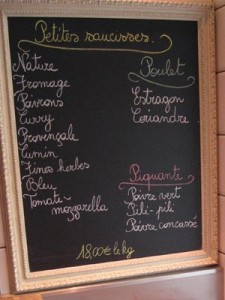 Petites saucisses.
Nature
Fromage
Poivrons
Curry
Provençale
Cumin
Fines herbes
Bleu
Tomate-
mozzarella
Poulet
Estragon
Coriandre
Piquante
Poivre vert
Pili-pili
Poivre concassé
18,00 € le kg